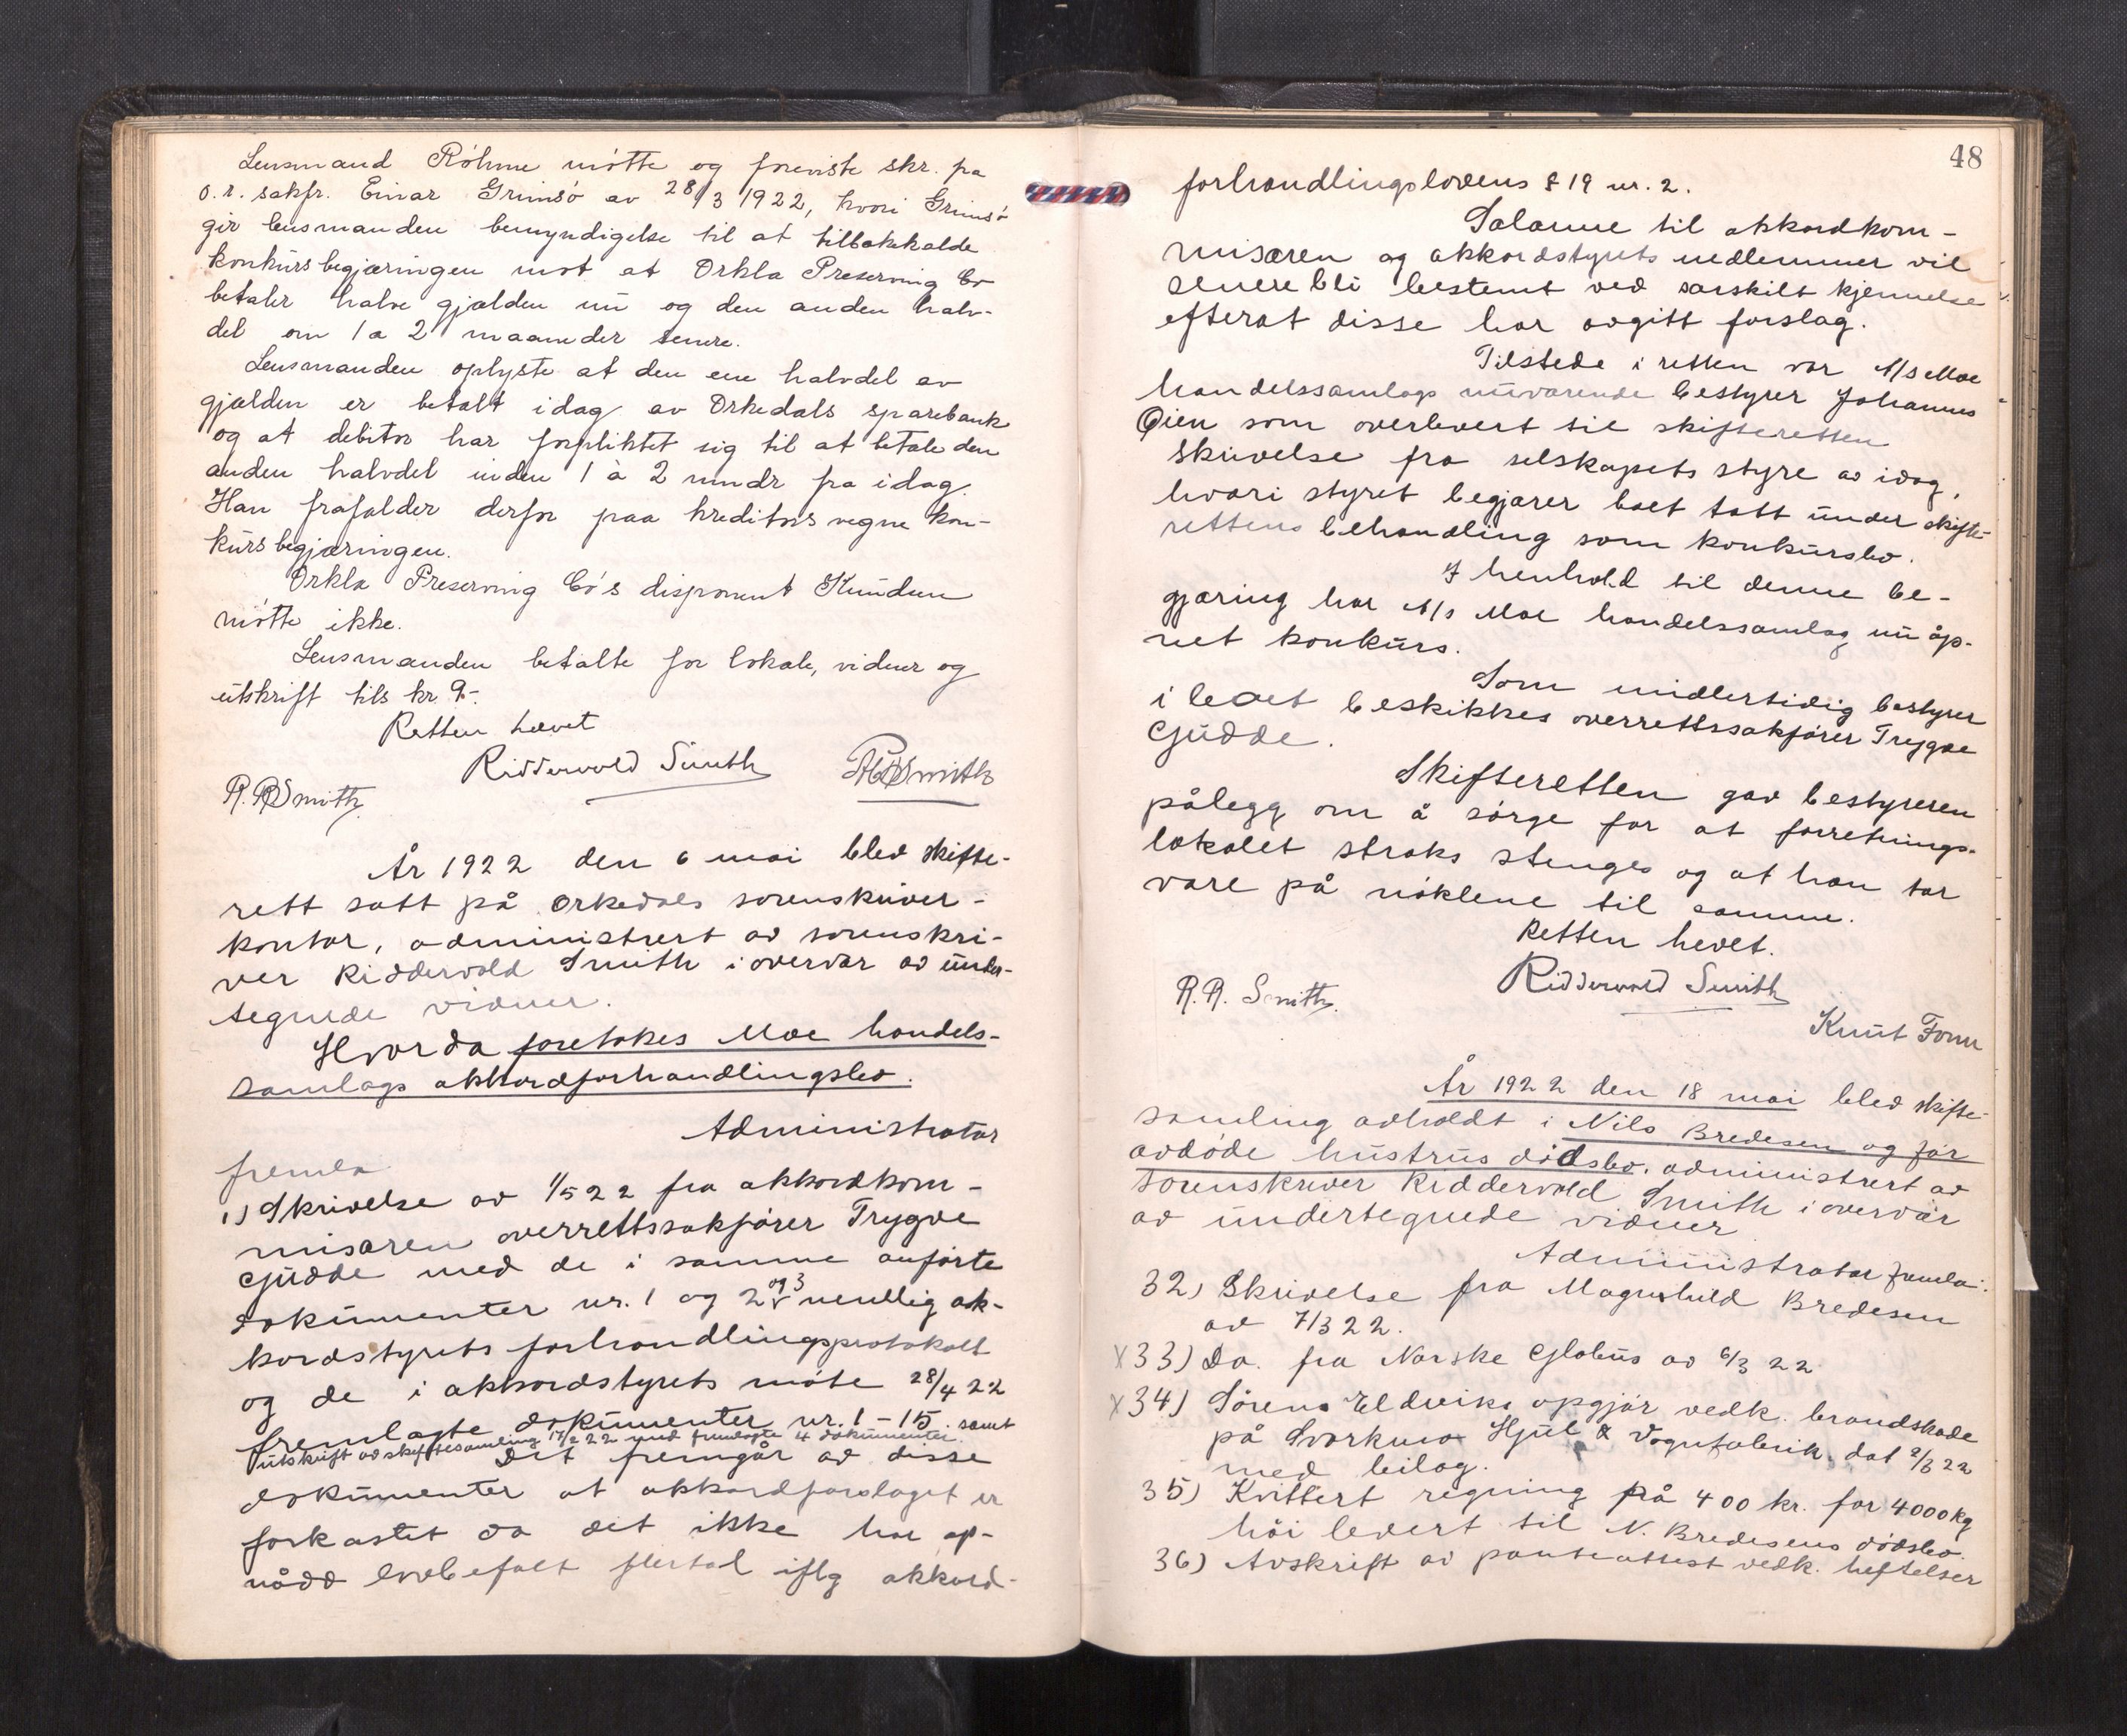 Lensmand Röhme mötte og foreviste skr. fra
o.r. sakfr. Einar Grimsö av 28/3 1922, hvori Grimsö
gir lensmanden bemyndigelse til at tilbakekalde
konkursbegjæringen mot at Orkla Preserving Co
betaler halve gjælden nu og den anden halv-
del om 1 a 2 maaneder senere.
Lensmanden oplyste at den ene halvdel av
gjælden er betalt idag av Orkedals sparebank
og at debitor har forpliktet sig til at betale den
anden halvdel inden 1 à 2 mndr fra idag.
Han frafalder derfor paa kreditors vegne kon-
kursbegjæringen.
Orkla Preserving Co's disponent Knudsen
mötte ikke.
Lensmanden betalte for lokale, vidner og
utskrift tils kr 9.-
Retten hævet
Ridderwold Smith
R. R. Smith.
År 1922 den 6 mai blev skifte-
rett satt på Orkedals sorenskriver-
kontor, administrert av sorenskri-
ver Riddervold Smith i overvær av under-
tegnede vidner.
Hvorda foretokes Moe handels-
samlags akkordforhandlingsbo.
Administrator
fremla
1) Skrivelse av 1/5 22 fra akkordkom-
misæren overrettssakfører Trygve
Gjudde med de i samme anførte
dokumenter nr. 1 og 2 og 3 nemlig ak-
kordstyrets forhandlingsprotokoll
og de i akkordstyrets møte 28/4 22
fremlagte dokumenter nr. 1 - 15. samt
utskrift av skiftesamling 17/2 22 med fremlagte 4 dokumenter.
Det fremgår av disse
dokumenter at akkordforslaget er
forkastet da det ikke har op-
nådd lovbefalt flertal iflg akkord-
48
forhandlingslovens § 19 nr. 2.
Salarene til akkordkom-
misæren og akkordstyrets medlemmer vil
senere bli bestemt ved særskilt kjennelse
efterat disse har avgitt forslag.
Tilstede i retten var A/s Moe
handelssamlags nuværende bestyrer Johannes
Øien som overlevert til skifteretten
skrivelse fra selskapets styre av idag,
hvori styret begjærer boet tatt under skifte-
rettens behandling som konkursbo.
I henhold til denne be-
gjæring har A/s Moe handelssamlag nu åp-
net konkurs.
Som midlertidig bestyrer
i boet beskikkes overrettssakfører Trygve
Gjudde.
Skifteretten gav bestyreren
pålegg om å sørge for at forretnings-
lokalet straks stenges og at han tar
vare på nøklene til samme.
Retten hevet.
Ridderwold Smith
R. R. Smith.
Knut Fonn
År 1922 den 18 mai blev skifte-
samling avholdt i Nils Bredesen og før
avdøde hustrus dødsbo. administrert av
sorenskriver Riddervold Smith i overvær
av undertegnede vidner
Administrator fremla:
32) Skrivelse fra Magnhild Bredesen
av 7/3 22.
x33) Do. fra Norske Globus av 6/3 22
x34) Sørens Eldeviks opgjør vedk. brandskade
på Svorkmo Hjul & Vognfabrik. dat 2/3 22
med bilag.
35) Kvittert regning på 400 kr. for 4000 kg
høi levert til N. Bredesens dødsbo.
36) Avskrift av panteattest vedk. heftelser